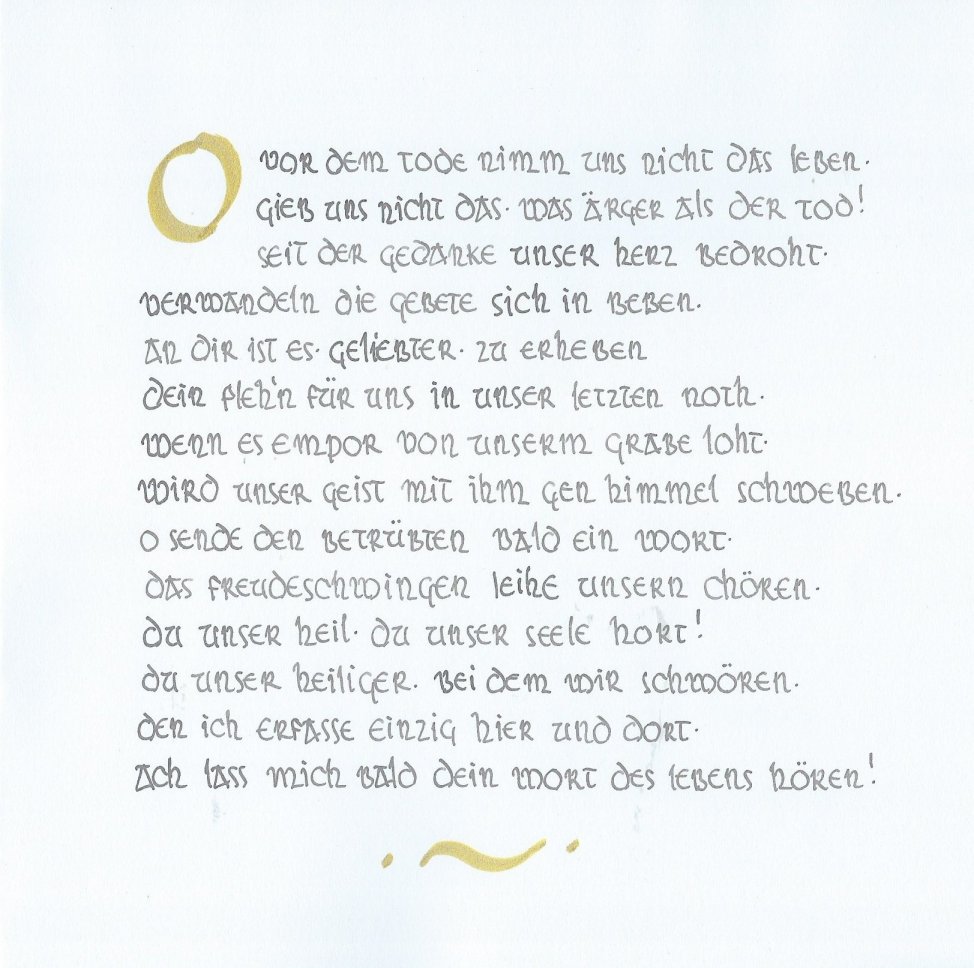 O vor dem tode nimm uns nicht das leben·
gieß uns nicht das· was ärger als der tod!
seit der gedanke unser herz bedroht·
verwandeln die gebete sich in beben.
an dir ist es· geliebter· zu erheben
dein fleh'n für uns in unser letzten noth·
wenn es empor von unserm grabe loht·
wird unser geist mit ihm gen himmel schweben·
o sende den betrübten bald ein wort·
das freudeschwingen leihe unsern chören·
du unser heil· du unser seele hort!
du unser heiliger· bei dem wir schwören·
den ich erfasse einzig hier und dort·
ach lass mich bald dein wort des lebens hören!